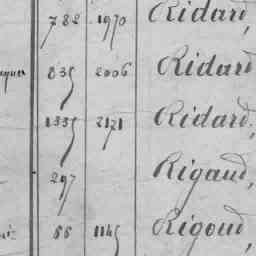 782 1970 Ridard,
835 2006 Ridard
1335 2121 Ridard,
297 Rigaud,
66 1145 Rigoud,